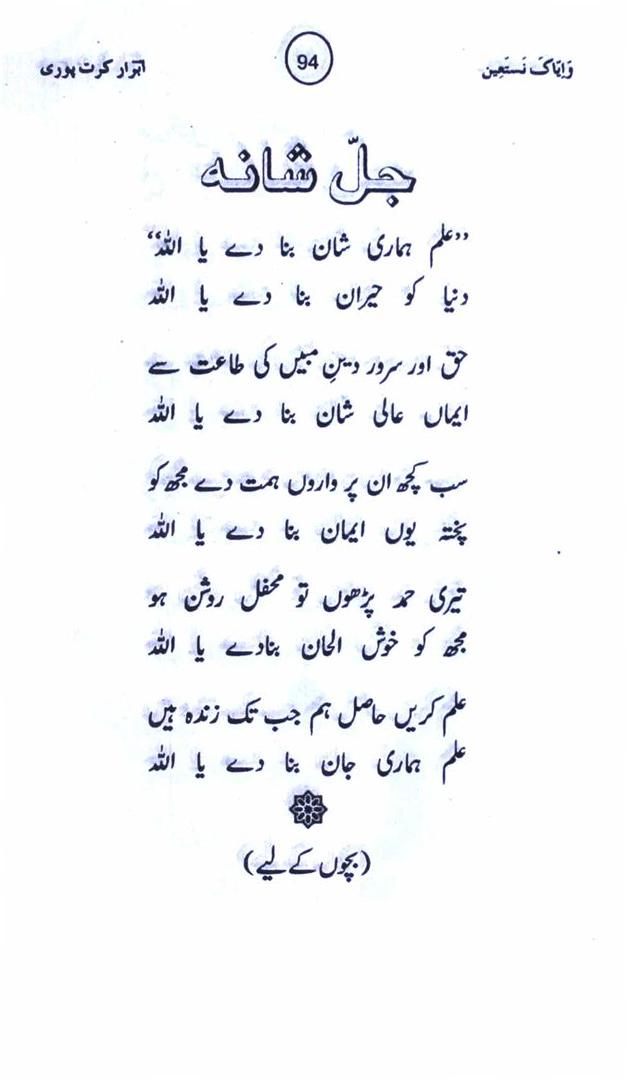 وَاِیّاکَ نَستَعِین
94
ابرار کرت پوری
جلّ شانہ
”علم ہماری شان بنا دے یا اللہ“
دنیا کو حیران بنا دے یا اللہ
حق اور سرور دینِ مبیں کی طاعت سے
ایماں عالی شان بنا دے یا اللہ
سب کچھ ان پر واروں ہمت دے مجھ کو
پختہ یوں ایمان بنا دے یا اللہ
تیری حمد پڑھوں تو محفل روشن ہو
مجھ کو خوش الحان بنادے یا اللہ
علم کریں حاصل ہم جب تک زندہ ہیں
علم ہماری جان بنا دے یا اللہ
(بچوں کے لیے)